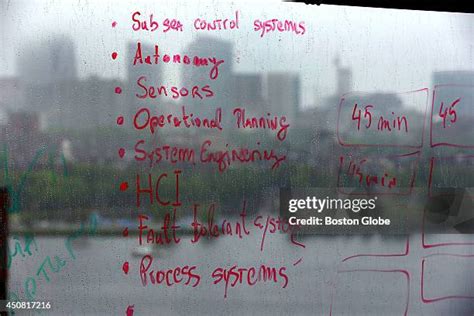 • Subsea control systems
• Autonomy
• Sensors
• Operational Planning
• Systems Engineering
• HCI
• Fault Tolerant systems
• Process systems
•
45 min
45
45 min
gettyimages
Credit: Boston Globe
450817216